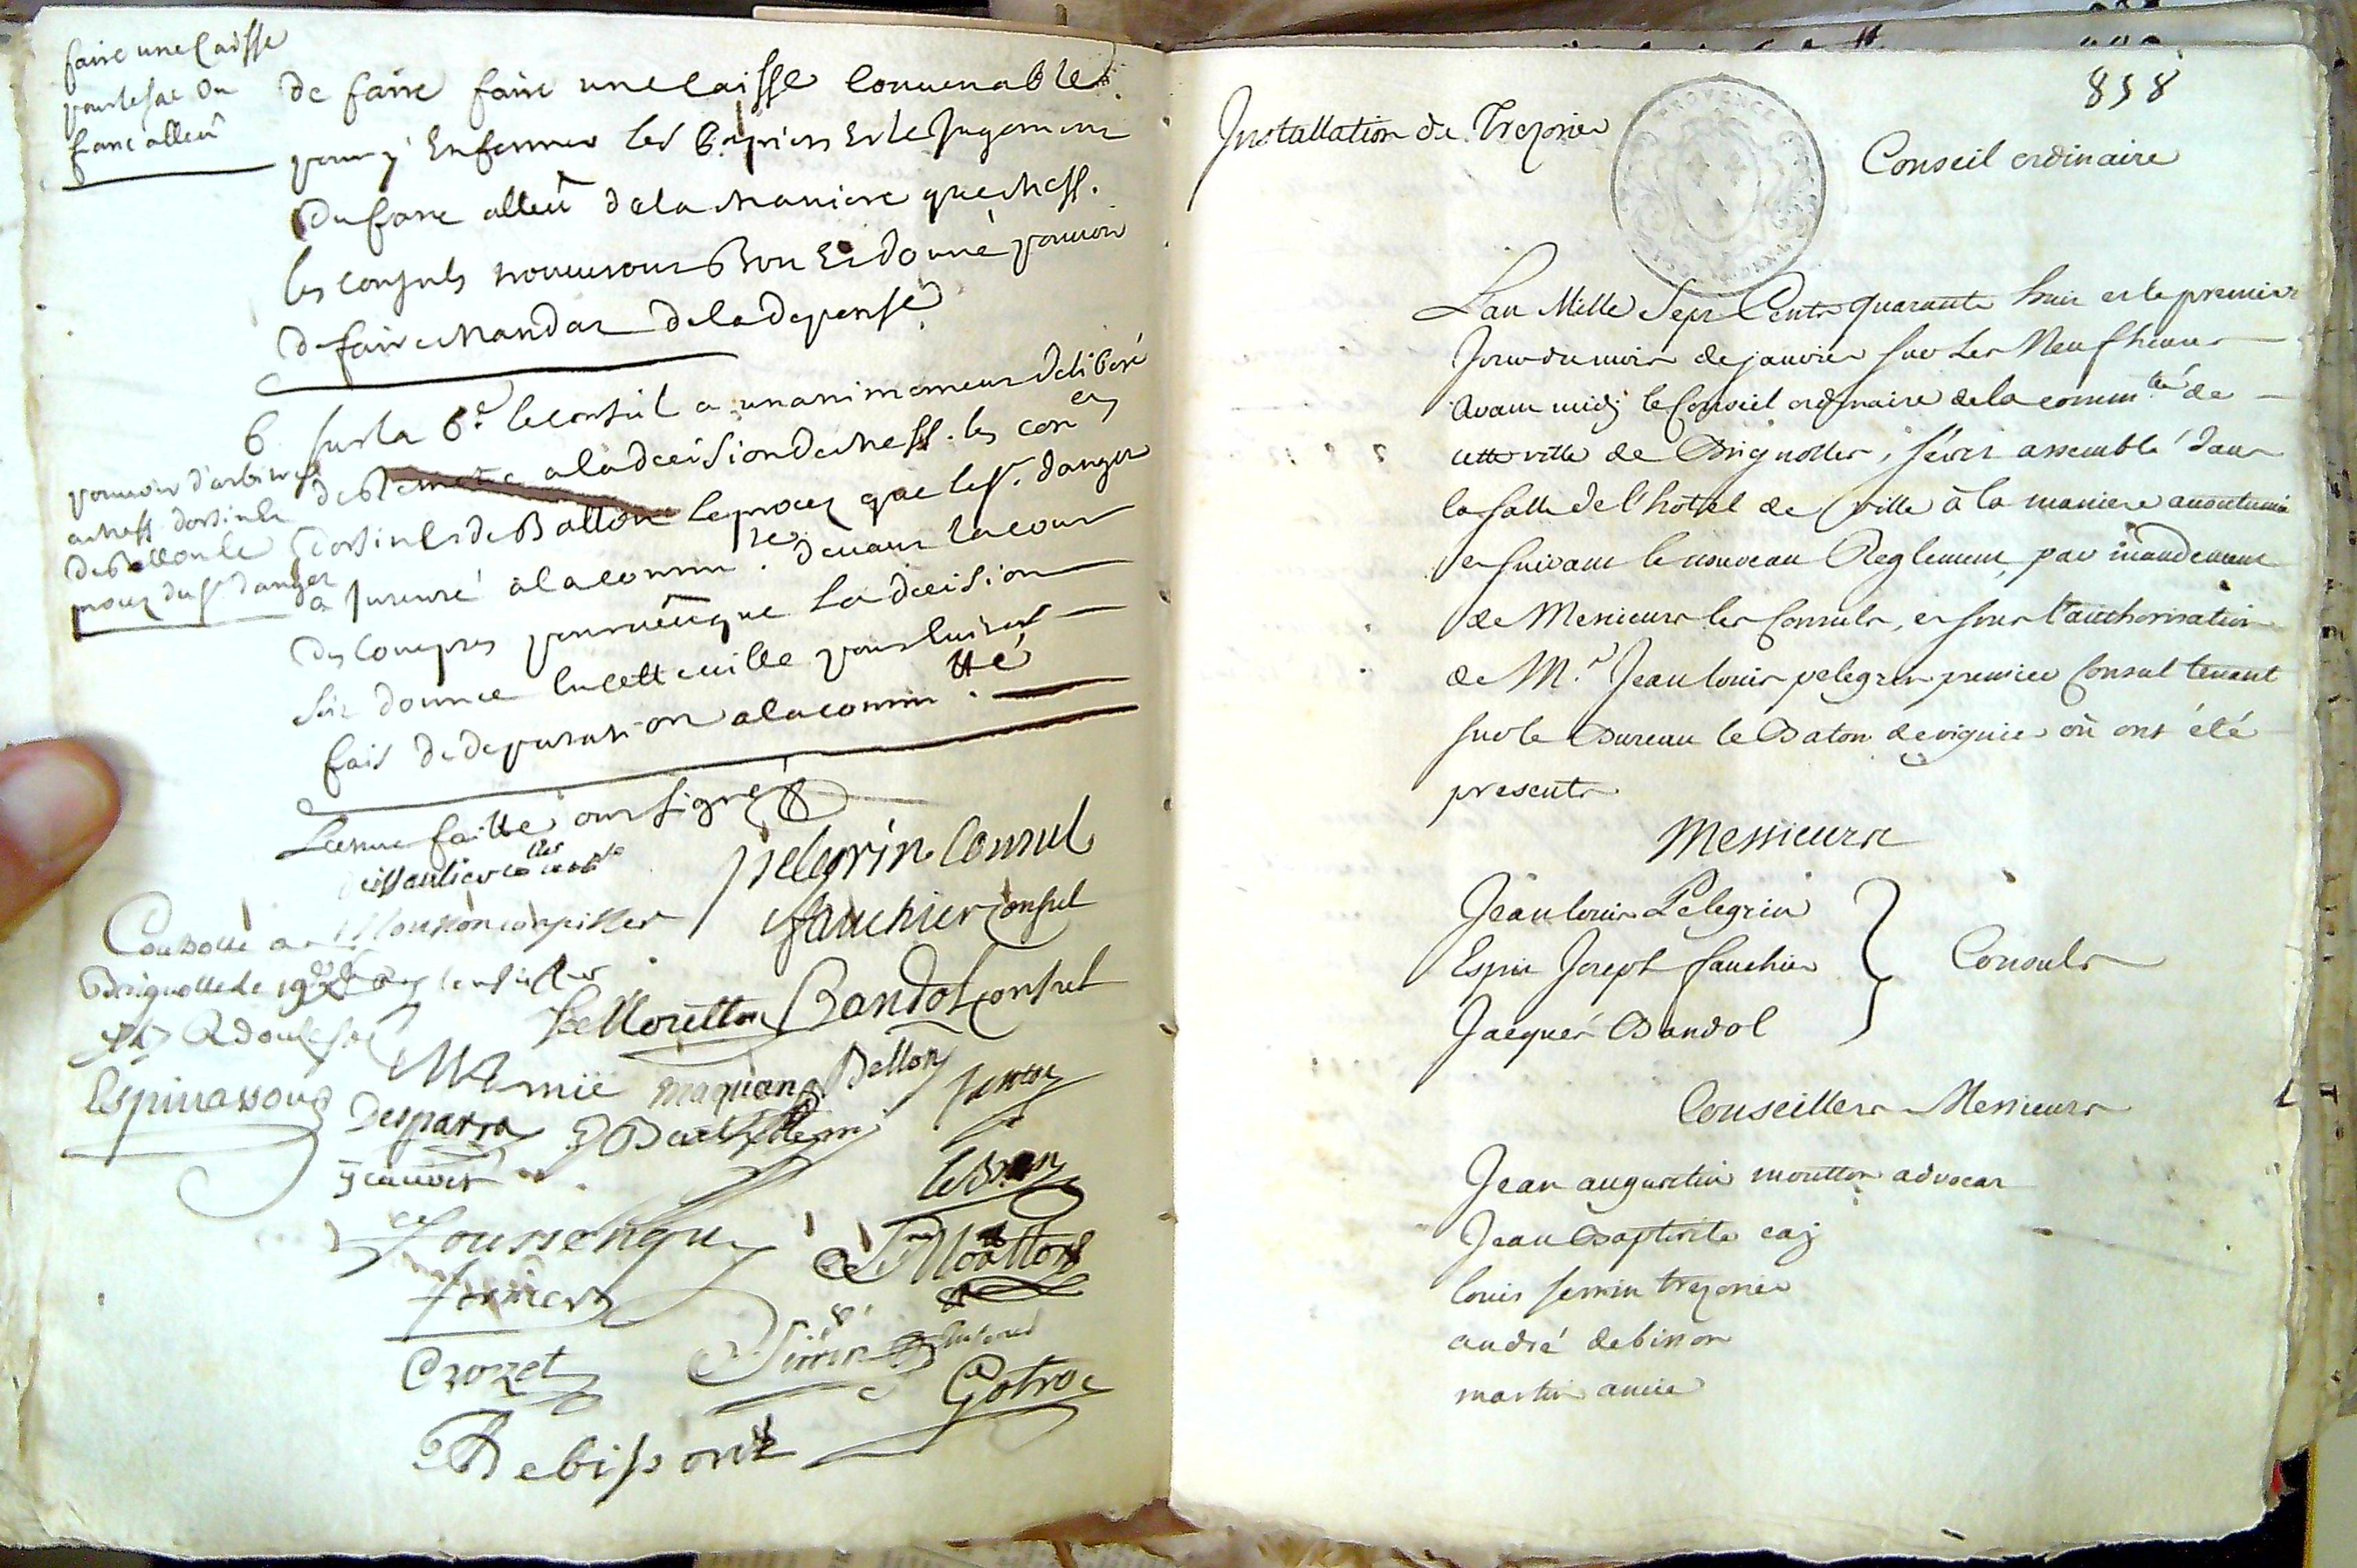 faire une Caisse
pour le sac Du
franc alleû
de faire faire une Caisse Convenable.
pour y Enfermer les papiers Et le Jugement
Du franc alleû de la Maniere que Mess.
les consuls trouveront Bon Et donné pouvoir
de faire Mandat de la depense
6. sur la 6e. le conseil a unanimement deliberé
pouvoir d'arbitrer
a Mess dorsin &
de Ballon le
procez du sr. danger
de Remettre a la decision de Mess. les con
dorsin & de Ballon le procez que le sr. danger
a Intenté a la commté. devant la cour
des Comptes pourveû que la decision
soit donnée en cette ville pour Eviter
frais de deputation a la commtté.
Lecture faitte ont signé
pelegrin Consul
fauchier Consul
Moutton
Bandol Consul
Amic
Bellon
Espinassous
Desparra
Toussenqu
Moutton
Crozet
Gotro
Debisson
858
Installation de Trezorier
Conseil ordinaire
PROVENCE
L'an Mille Sept Cents quarante huit et le premier
Jour du mois de janvier sur Les Neuf heures
Avant midj le Conseil ordinaire de la commté. de
cette ville de Brignolles, s'est assemblé dans
la salle de l'hôtel de ville à la maniere accoutumée
et suivant le nouveau Reglement, par mandement
de Messieurs les Consuls, et sous l'authorisation
de Mr. Jean louis pelegrin premier Consul tenant
sur le Bureau le Baton de viguier où ont été
presents
Messieurs
Jean louis Pelegrin
Esprit Joseph fauchier
Consuls
Jacques Bandol
Conseillers Messieurs
Jean augustin moutton advocat
Jean Baptiste caj
louis serrin trezorier
andré debisson
martin amic